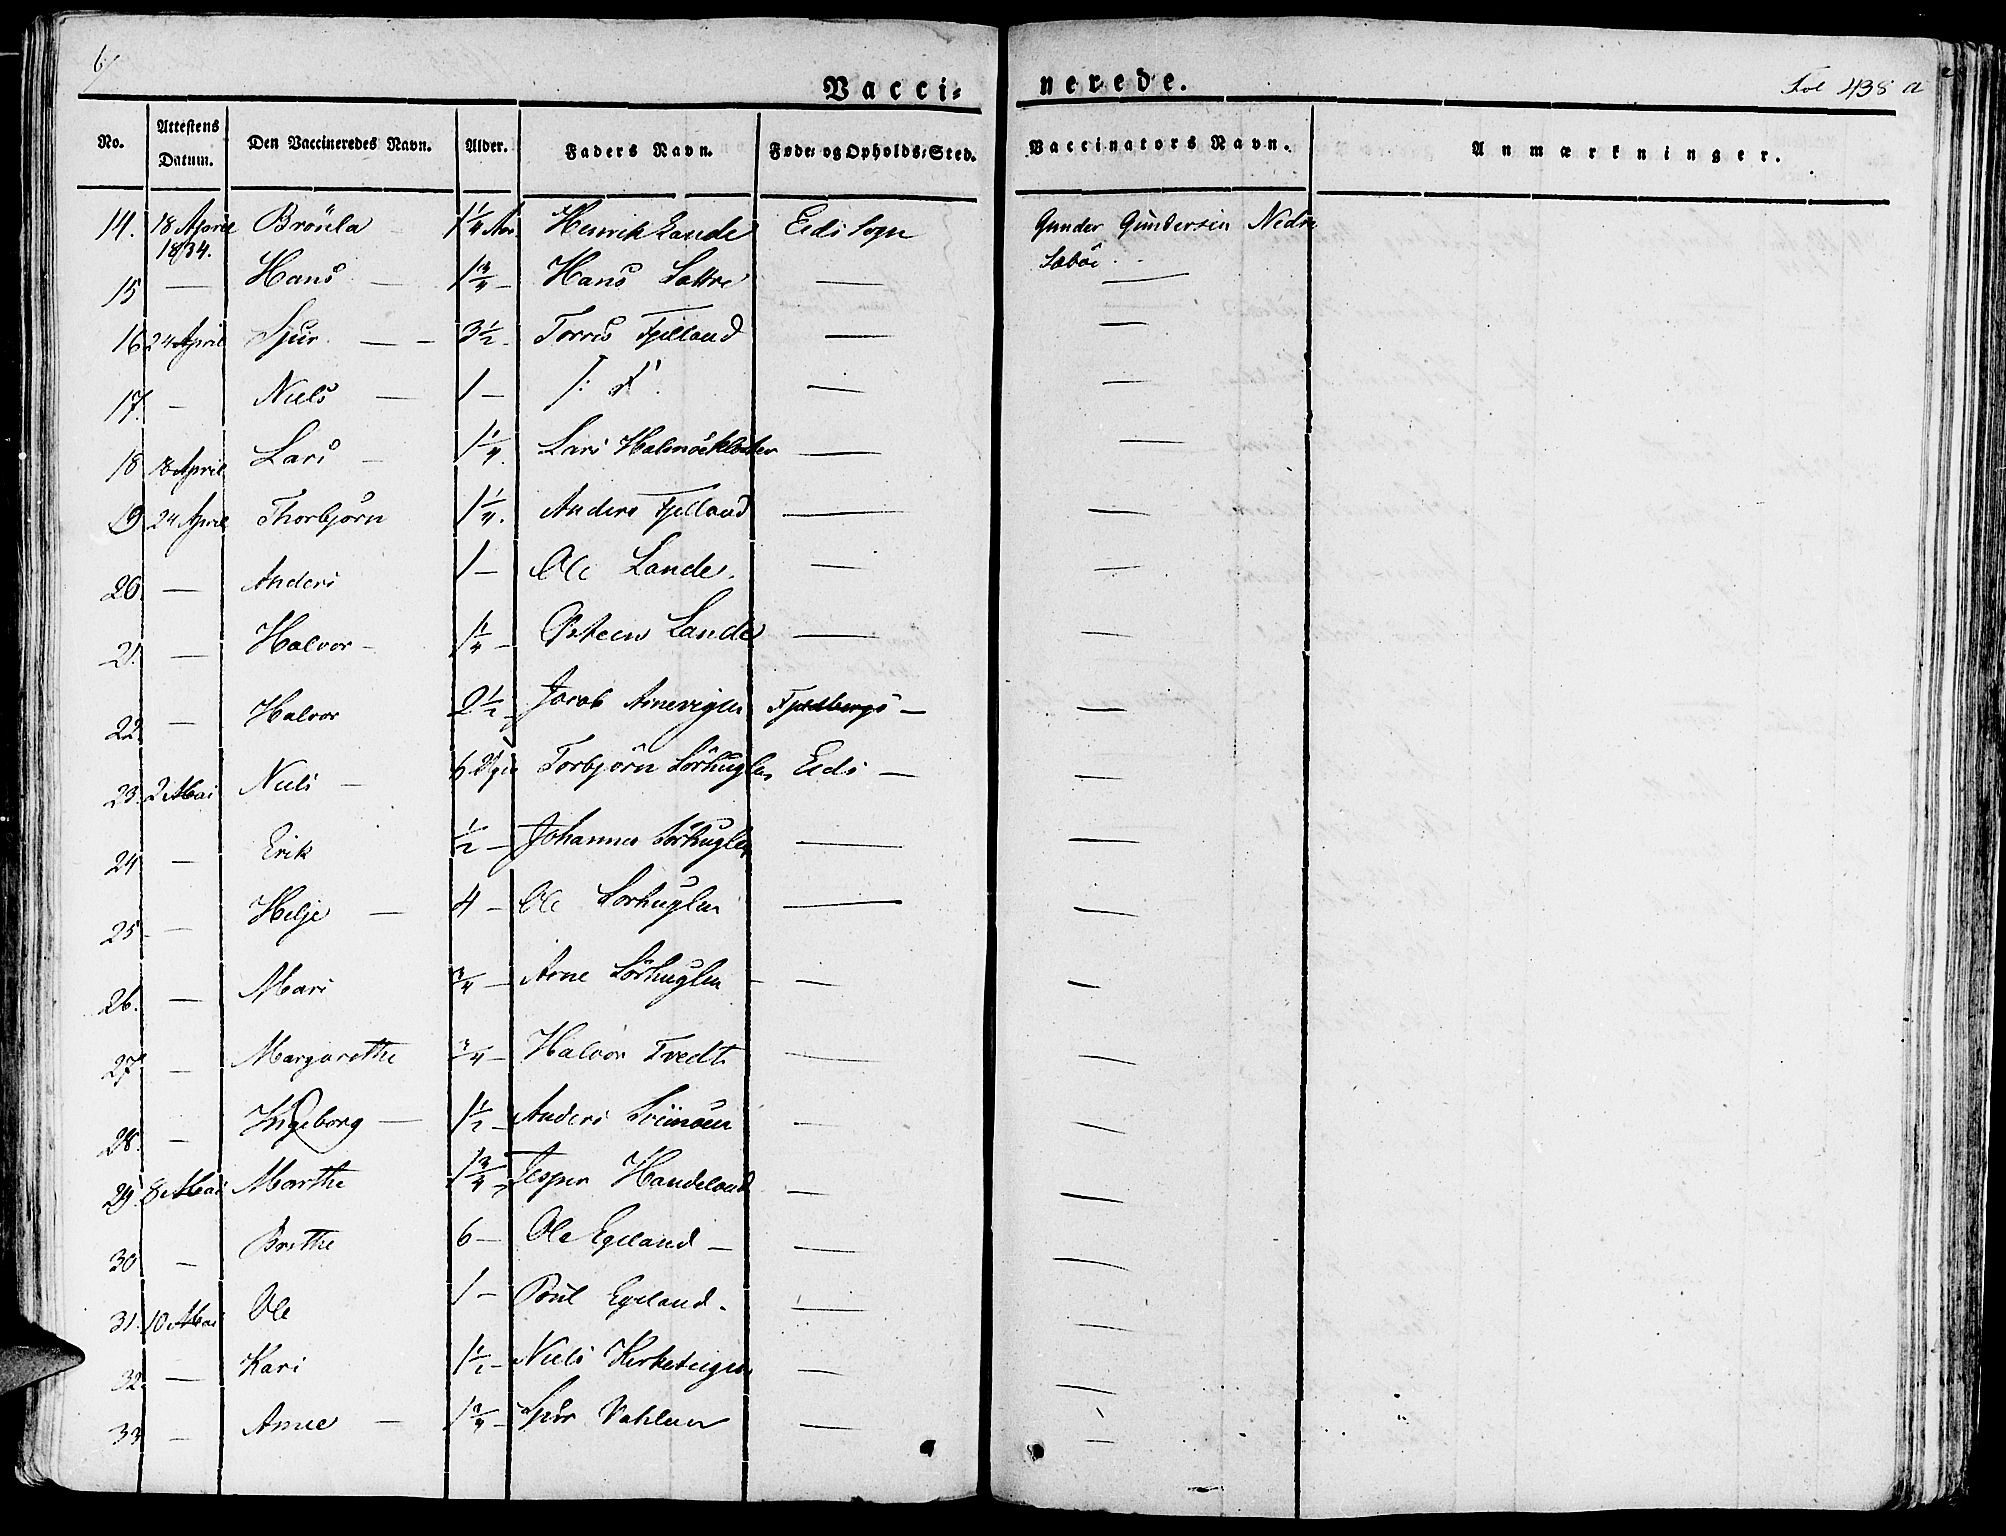 6/
Vacci- nerede.
Fol 438 a
No. Attestens Datum. Den Vaccineredes Navn. Alder. Faders Navn. Føde- og Opholds-Sted. Vaccinators Navn. Anmærkninger.
14. 18 April 1834. Brönla - 1 1/4 Aar Henrik Lande Eids Sogn Gunder Gundersen Nedre Sæböe
15 — Hans — 1 3/4 Hans Sættre — —
16 24 April Sjur — — 3 1/2 - Torres Fjelland — —
17. — Niels — 1 — — —
18 18 April Lars — 1 1/4. Lars — —
19 24 April Thorbjørn 1 1/4. Anders Fjelland — —
20 — Anders 1 — Ole Lande. — —
21. — Halvor - 1 1/4 — Østeen Lande — —
22. — Halvor 2 1/2 - Jacob Arnevigen Fjeldbergs — —
23. 2 Mai Niels — 6 Uger Torbjörn Sörhuglen Eids — —
24 — Erik 1/2 — Johannes Sörhuglen — —
25 - — Helje — 4 — Ole Sörhuglen — —
26. — Mari 3/4 — Arne Sörhuglen — — —
27. — Margarethe 3/4 — Halvor Tvedt — —
28. — Ingeborg — 1 1/2 — Anders — —
29. 8 Mai Marthe 1 3/4 - Jesper Handeland — —
30 — Brithe 6 — Ole Egeland — — —
31. 10 Mai Ole 1 — Poul Egeland. — —
32. — Kari 1 1/2 — Niels Kirketeigen — —
33 — Anne — 1 3/4 — Sjur — —